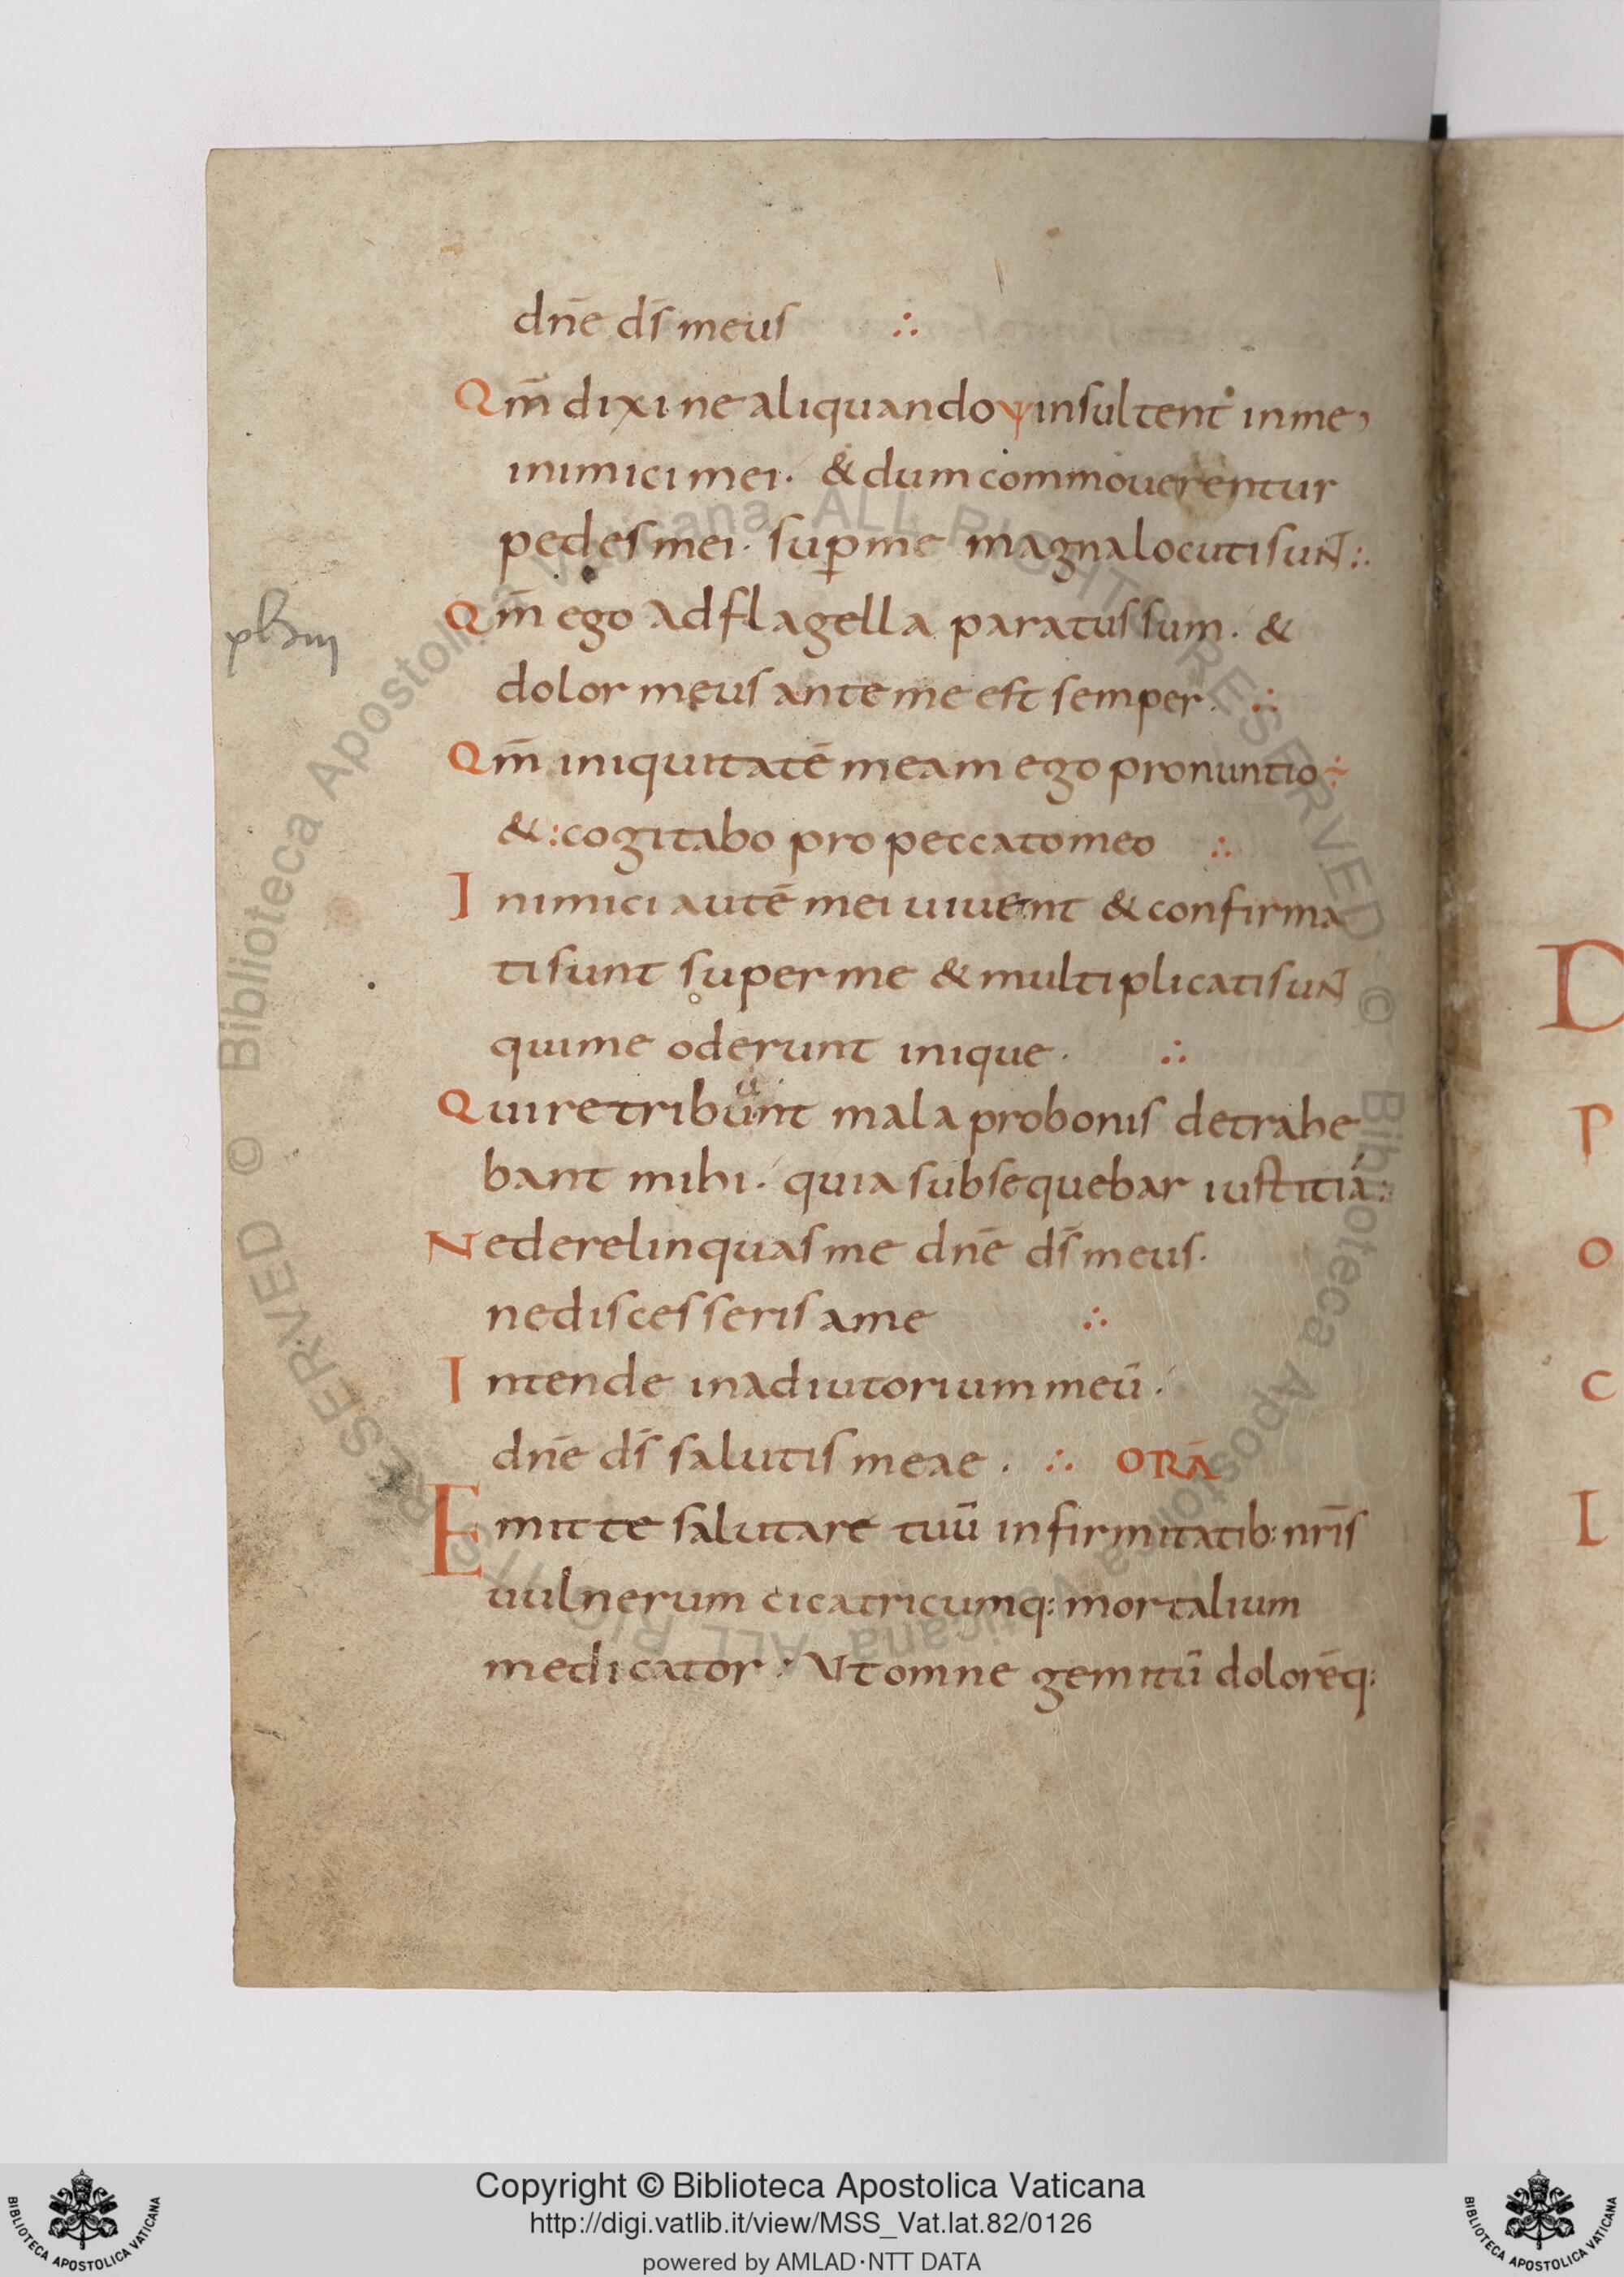 dn̄e ds̄ meus ∴
Qm̄ dixi ne aliquando ψ insultent in me
inimici mei · & dum commouerentur
pedes mei · sup̱ me magna locuti suNT :·
pbm
Qm̄ ego ad flagella paratus sum · &
dolor meus ante me est semper · ∴
Qm̄ iniquitatē meam ego pronuntio ÷
& : cogitabo pro peccato meo ∴
Inimici autē mei uiuent & confirma
ti sunt super me & multiplicati suNT
qui me oderunt inique · ∴
Qui retribunt mala pro bonis detrahe
bant mihi · quia subsequebar iustitiā :·
Ne derelinquas me dn̄e ds̄ meus ·
ne discesseris a me ∴
Intende in adiutorium meū ·
dn̄e ds̄ salutis meae · ∴ ORA̅
Emitte salutare tuū infirmitatib: nr̄is
uulnerum cicatricumq: mortalium
medicator · Ut omne gemitū dolorēq:
D
P
O
C
I
© Biblioteca Apostolica Vaticana ALL RIGHTS RESERVED © Biblioteca Apostolica Vaticana ALL RIGHTS RESERVED
Copyright © Biblioteca Apostolica Vaticana
http://digi.vatlib.it/view/MSS_Vat.lat.82/0126
powered by AMLAD·NTT DATA
BIBLIOTECA APOSTOLICA VATICANA
BIBLIOTECA APOSTOLICA VATICANA